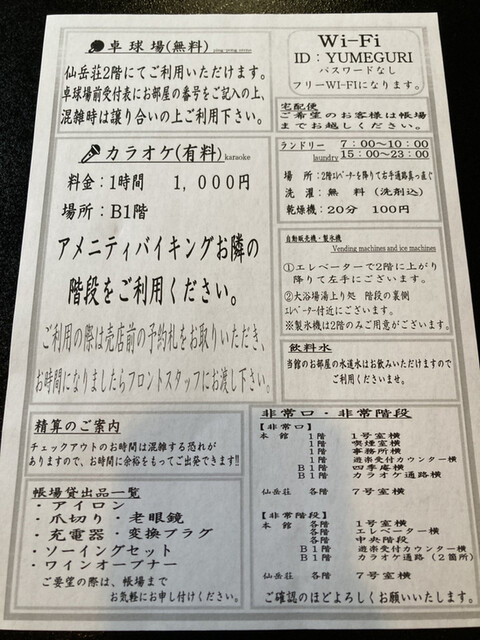 卓球場(無料) ping-pong room
仙岳荘2階にてご利用いただけます。
卓球場前受付表にお部屋の番号をご記入の上、
混雑時は譲り合いの上ご利用下さい。
カラオケ(有料) karaoke
料金：1時間 1，000円
場所：B1階
アメニティバイキングお隣の
階段をご利用ください。
ご利用の際は売店前の予約札をお取りいただき、
お時間になりましたらフロントスタッフにお渡し下さい。
精算のご案内
チェックアウトのお時間は混雑する恐れが
ありますので、お時間に余裕をもってご出発できます!!
帳場貸出品一覧
・アイロン
・爪切り・老眼鏡
・充電器・変換プラグ
・ソーイングセット
・ワインオープナー
ご要望の際は、帳場まで
お気軽にお申し付けください。
Wi-Fi
ID：YUMEGURI
パスワードなし
フリーWI-FIになります。
宅配便
ご希望のお客様は帳場
までお越しください。
ランドリー laundry
7：00～10：00
15：00～23：00
場 所：2階エレベーターを降りて右手通路真っ直ぐ
洗 濯：無 料 (洗剤込)
乾燥機：20分 100円
自動販売機・製氷機
Vending machines and ice machines
①エレベーターで2階に上がり
降りて左手にございます。
②大浴場湯上り処 階段の裏側
エレベーター付近にございます。
※製氷機は2階のみご用意がございます。
飲料水
当館のお部屋の水道水はお飲みいただけますので
ご利用くださいませ。
非常口・非常階段
【非常口】
本館 1階 1号室横
1階 喫煙室横
1階 事務所横
1階 遊楽受付カウンター横
B1階 四季庵横
B1階 カラオケ通路横
仙岳荘 各階 7号室横
【非常階段】
本館 各階 1号室横
各階 エレベーター横
各階 中央階段
B1階 遊楽受付カウンター横
B1階 カラオケ通路横（2箇所）
仙岳荘 各階 7号室横
ご確認のほどよろしくお願いいたします。